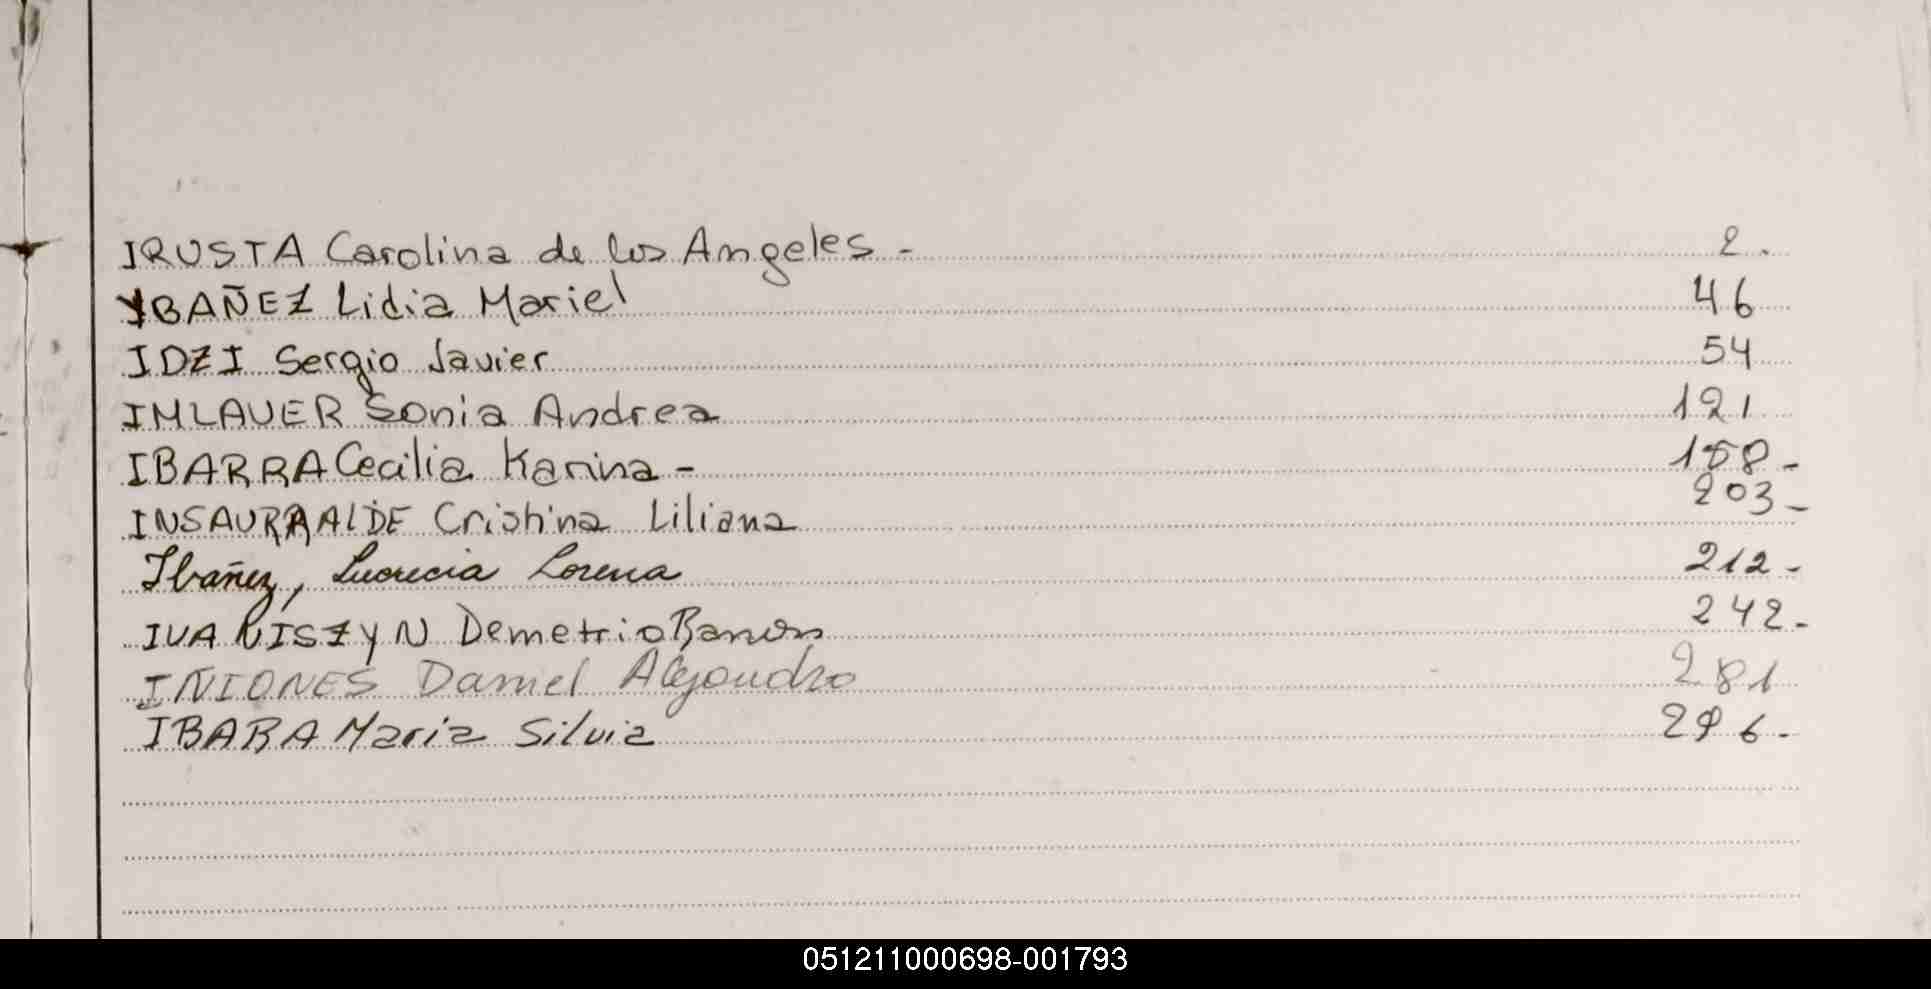 IRUSTA Carolina de los Angeles - 2.
YBAÑEZ Lidia Mariel 46
IDZI Sergio Javier 54
IMLAUER Sonia Andrea 121
IBARRA Cecilia Karina - 158-
INSAURRALDE Cristina Liliana 203-
Ibañez, Lucrecia Lorena 212-
Demetrio Ramon 242-
IÑIONES Daniel Alejandro 281
IBARA Maria Silvia 296-
051211000698-001793